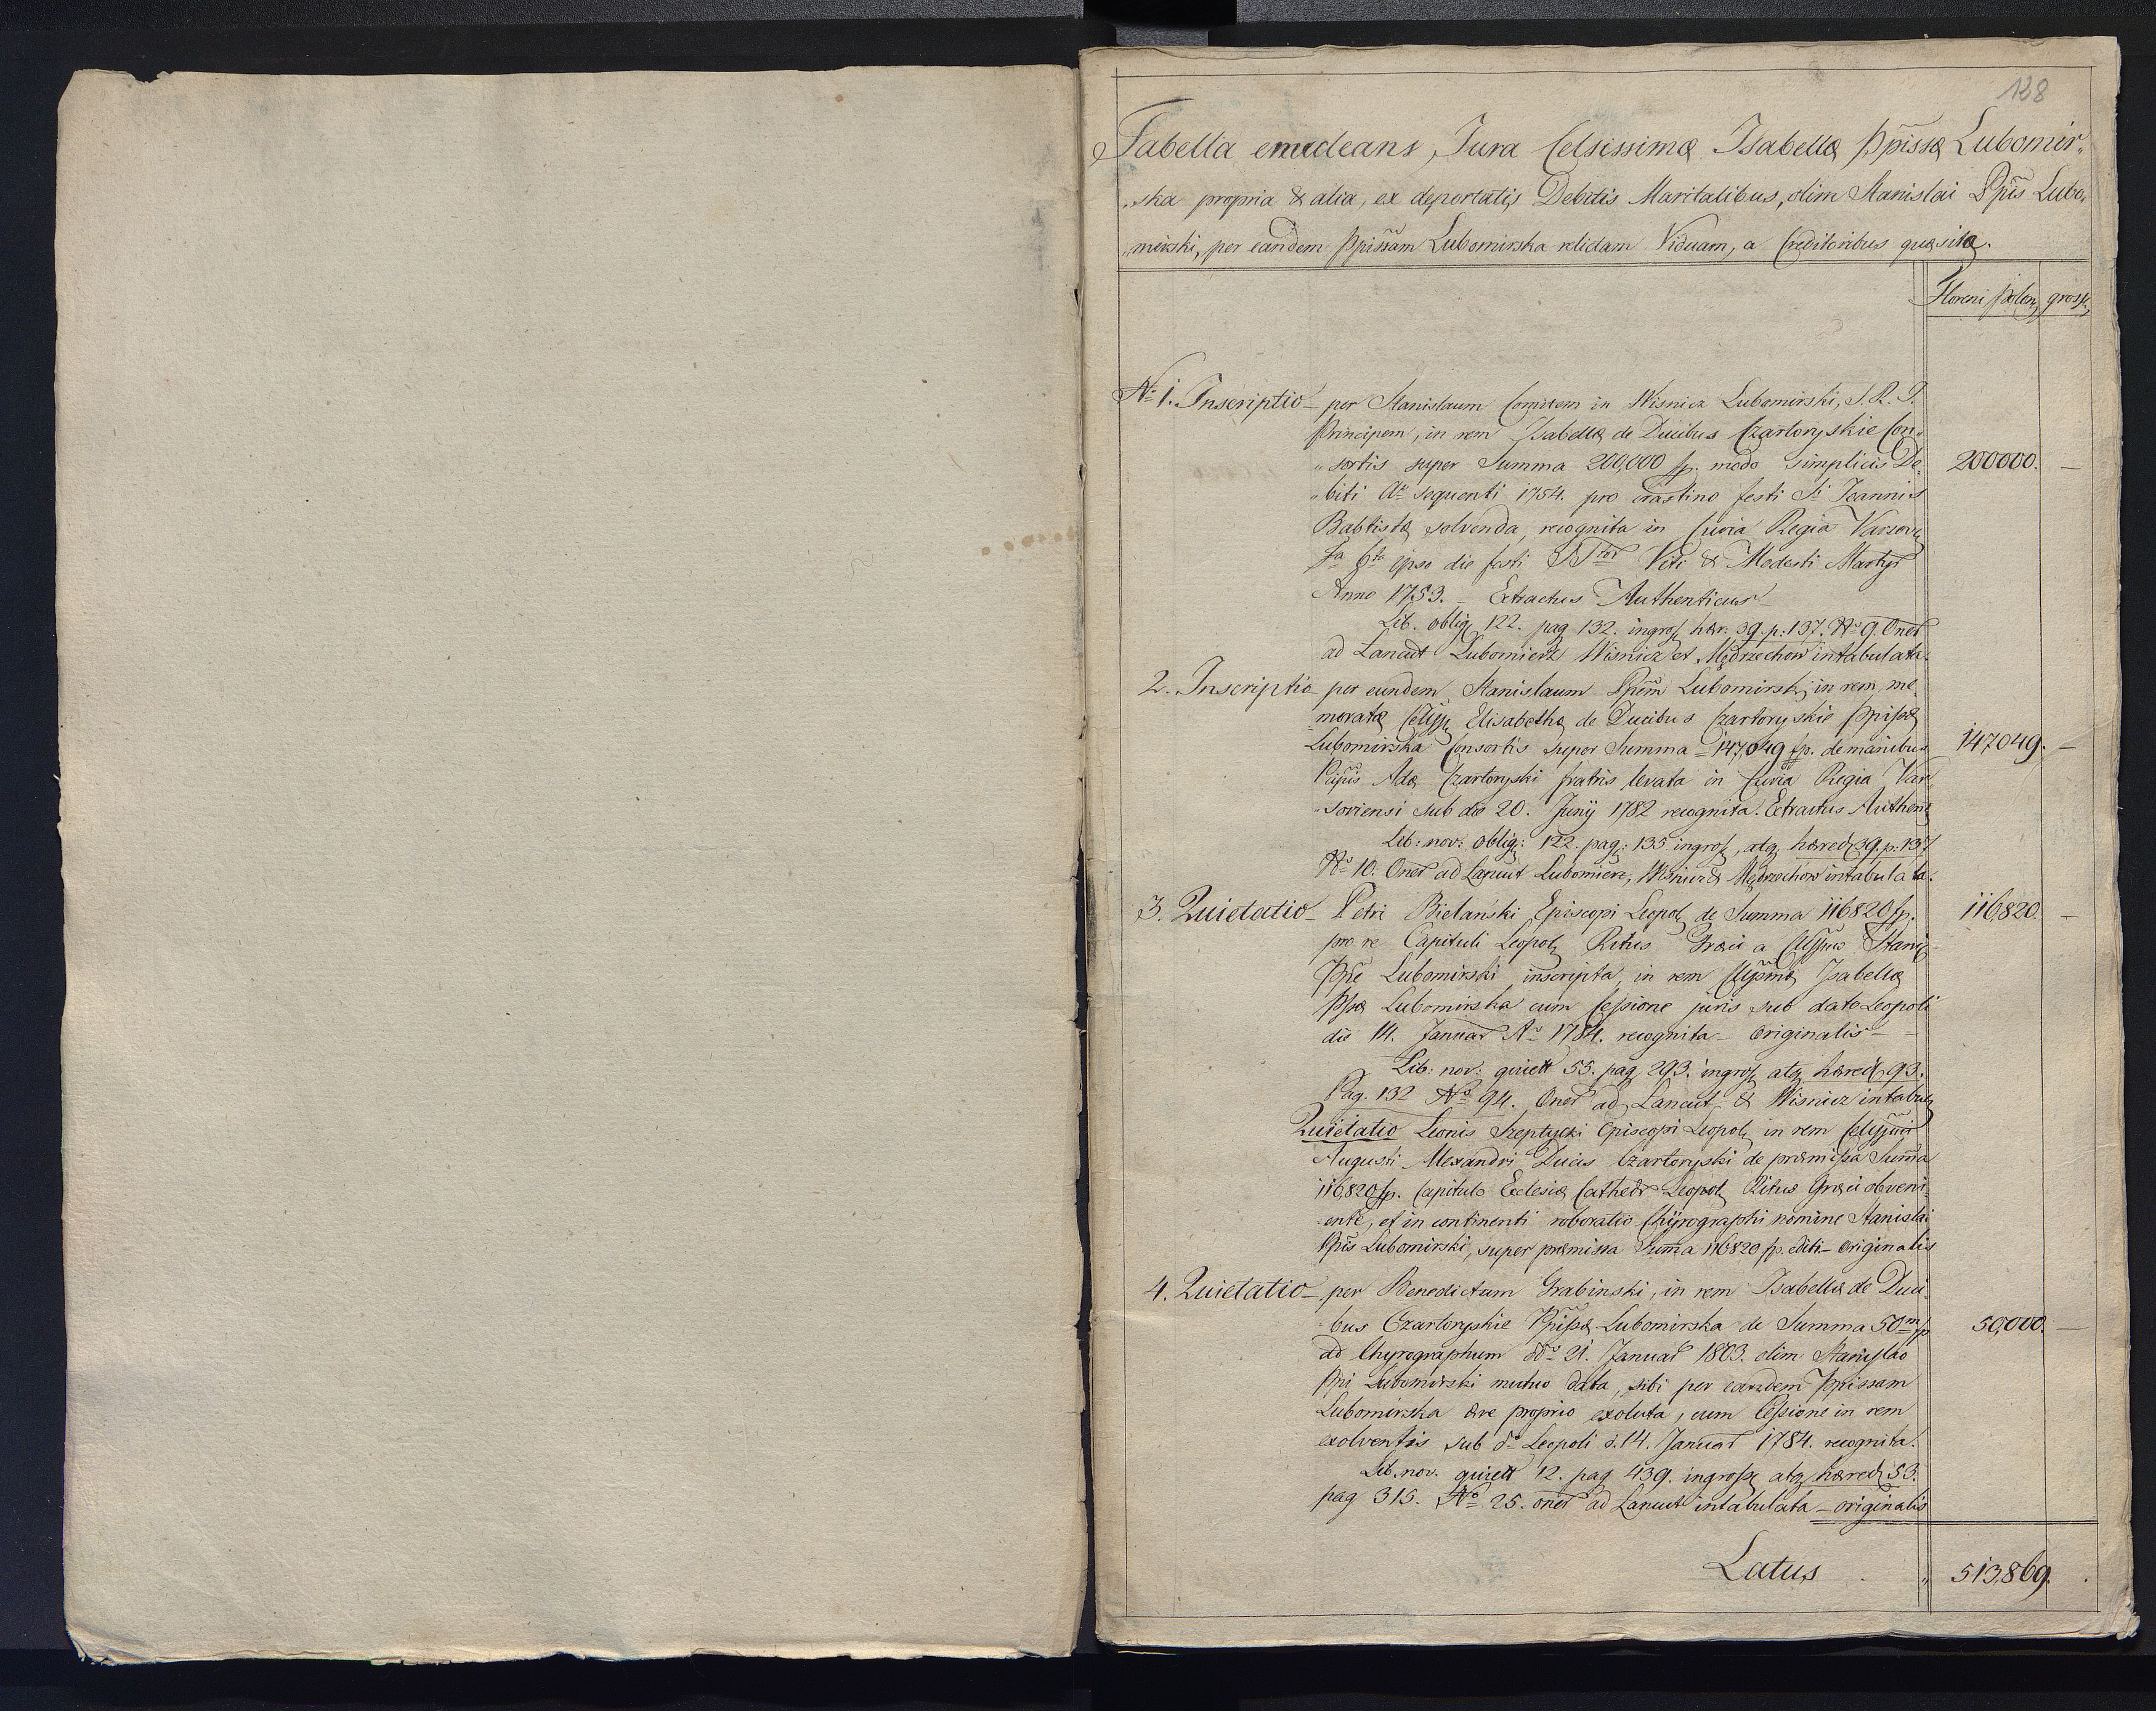 128
Tabella enucleans Jura Celsissimæ Isabellæ Ppissæ Lubomir„
„ska propria & alia, ex deportatis Debitis Maritalibus, olim Stanislai Ppis Lubo„
„mirski, per eandem Ppissam Lubomirska relictam Viduam, a Creditoribus quæsita.
Floreni polon, gross,
No 1. Inscriptio – per Stanislaum Comitem in Wisnicz Lubomirski, S. R. I.
Principem, in rem Isabellæ de Ducibus Czartoryskie Con„
„sortis super Summa 200,000 fp. modo simplicis De„ 200000. –
„biti Ao sequenti 1754. pro crastino festi Sti Joannis
Babtistæ solvenda, recognita in Curia Regia Varsov
Fa 6ta ipso die festi SStor Viti & Modesti Martyr
Anno 1753. – Extractus Authenticus
Lib. oblig 122. pag 132. ingros, hær: 39. p: 137. No 9. Oner
ad Lancut Lubomierz Wisnicz et Mędrzechow intabulata.
2. Inscriptio – per eundem Stanislaum Ppem Lubomirski, in rem me„
moratæ Celsss Elisabethæ de Ducibus Czartoryskie Ppissæ
Lubomirska Consortis super Summa – 147049 fp. de manibus 147049. –
Ppis Adæ Czartoryski fratris levata in Curia Regia Var„
„soviensi sub die 20. Junij 1782 recognita. Extractus Authent
Lib: nov: oblig: 122. pag: 135 ingros, atq hæred 39. p: 137
No 10. Oner ad Lancut Lubomierz, Wisnicz & Mędrzechow intabulata.
3. Quietatio – Petri Bielański Episcopi Leopol de Summa 116820 fp. 116,820. –
pro re Capituli Leopol Ritus Græci a Celssmo Stanis
Ppe Lubomirski inscripta, in rem Celssmæ Isabellæ
Pssæ Lubomirska cum Cessione juris sub dato Leopoli
die 14. Januar Ao 1784. recognita – Originalis –
Lib: nov: quiett 55. pag 293. ingros, atq hæred 93.
Pag. 132 No 94. Oner ad Lancut & Wisnicz intabul
Quietatio Leonis Szeptycki Episcopi Leopol in rem Celsssimi
Augusti Alexandri Ducis Czartoryski de præmissa Summa
116,820 fp. Capitulo Eclesiæ Cathedr Leopol Ritus Græci obveni„
„ente, et in continenti roboratio Chyrographi nomine Stanislai
Ppis Lubomirski, super præmissa Suma 116820 fp. editi – Originalis
4. Quietatio – per Benedictum Grabinski, in rem Isabellæ de Duci„
„bus Czartoryskie Ppissæ Lubomirska de Summa 50m fp 50,000. –
ad Chyrographum ddo 21. Januar 1803. olim Stanislao
Ppi Lubomirski mutuo data, sibi per eandem Ppissam
Lubomirska ære proprio exoluta, cum Cessione in rem
exolventis sub do Leopoli d. 14. Januar 1784. recognita.
Lib. nov. quiett 12. pag 439. ingross atq hæred 53.
pag 315. No 25. oner ad Lancut intabulata – originalis
Latus . „ 513,869. .